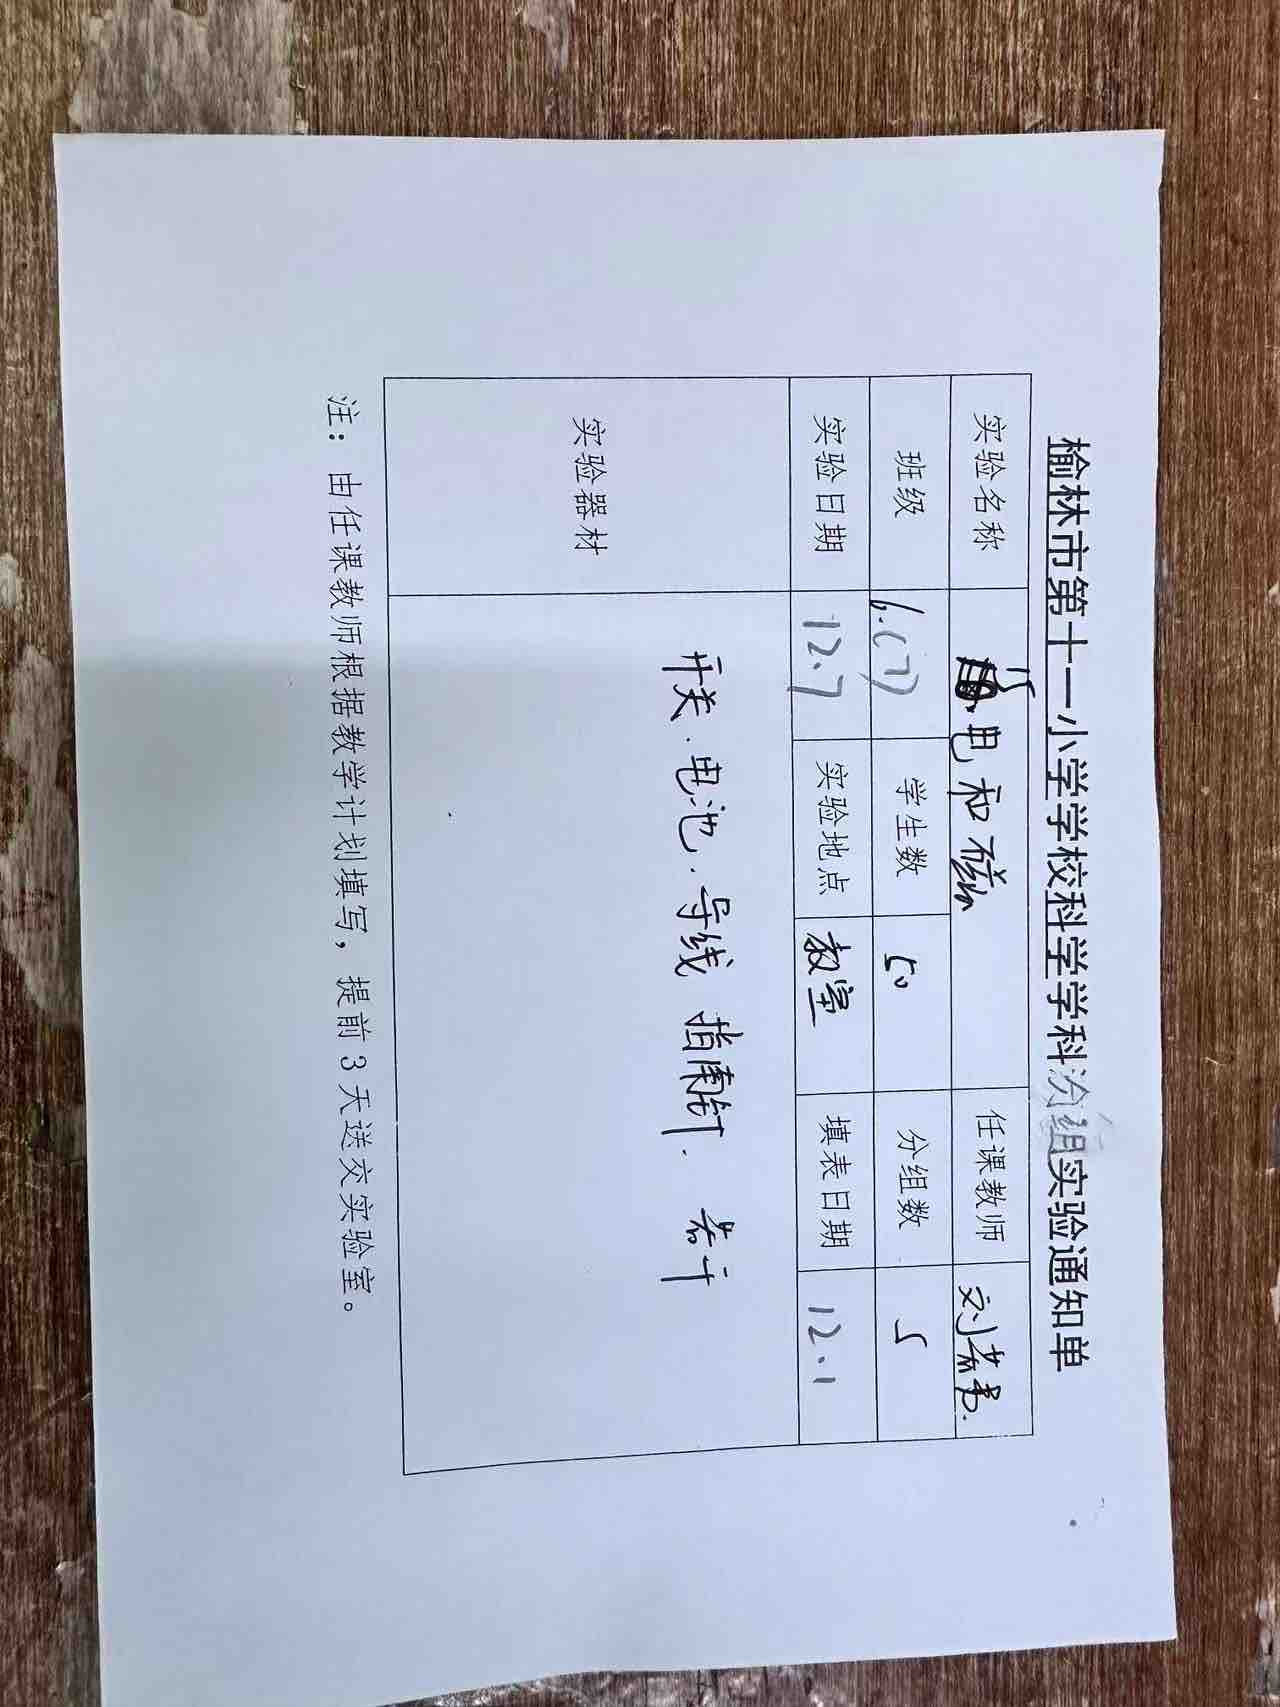 榆林市第十一小学学校科学学科分组实验通知单
实验名称 15 电和磁 任课教师
班级 6.(7) 学生数 50 分组数 5
实验日期 12.7 实验地点 教室 填表日期 12.1
实验器材 开关.电池.导线 指南针. 若干
注：由任课教师根据教学计划填写，提前3天送交实验室。